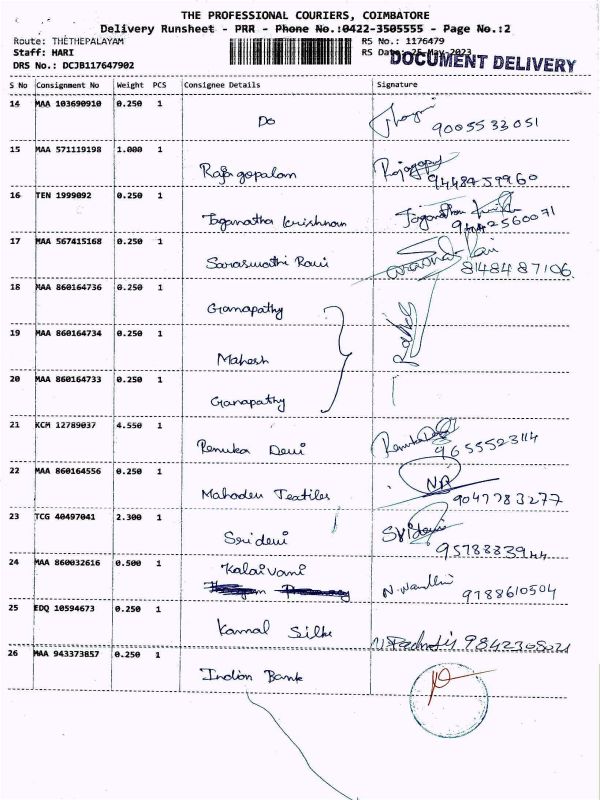 THE PROFESSIONAL COURIERS, COIMBATORE
Delivery Runsheet - PRR - Phone No.:0422-3505555 - Page No.:2
Route: THETHEPALAYAM RS No.: 1176479
Staff: HARI RS Date: 25-May-2023
DOCUMENT DELIVERY
DRS No.: DCJB117647902
S No Consignment No Weight PCS Consignee Details Signature
14 MAA 103690910 0.250 1 Do 9005533051
15 MAA 571119198 1.000 1 Rajagopalan Rajagopal
16 TEN 1999092 0.250 1 Jaganatha Krishnan 9442560071
17 MAA 567415168 0.250 1 Saraswathi Ravi 8148487106
18 MAA 860164736 0.250 1 Ganapathy
19 MAA 860164734 0.250 1 Mahesh
20 MAA 860164733 0.250 1 Ganapathy
21 KCM 12789037 4.550 1 Renuka Devi
22 MAA 860164556 0.250 1 Mahadev Textiles 9047783277
23 TCG 40497041 2.300 1 Sridevi Sridevi
24 MAA 860032616 0.500 1 Kalaivani 9788610504
25 EDQ 10594673 0.250 1 Kamal Silks
26 MAA 943373857 0.250 1 Indian Bank